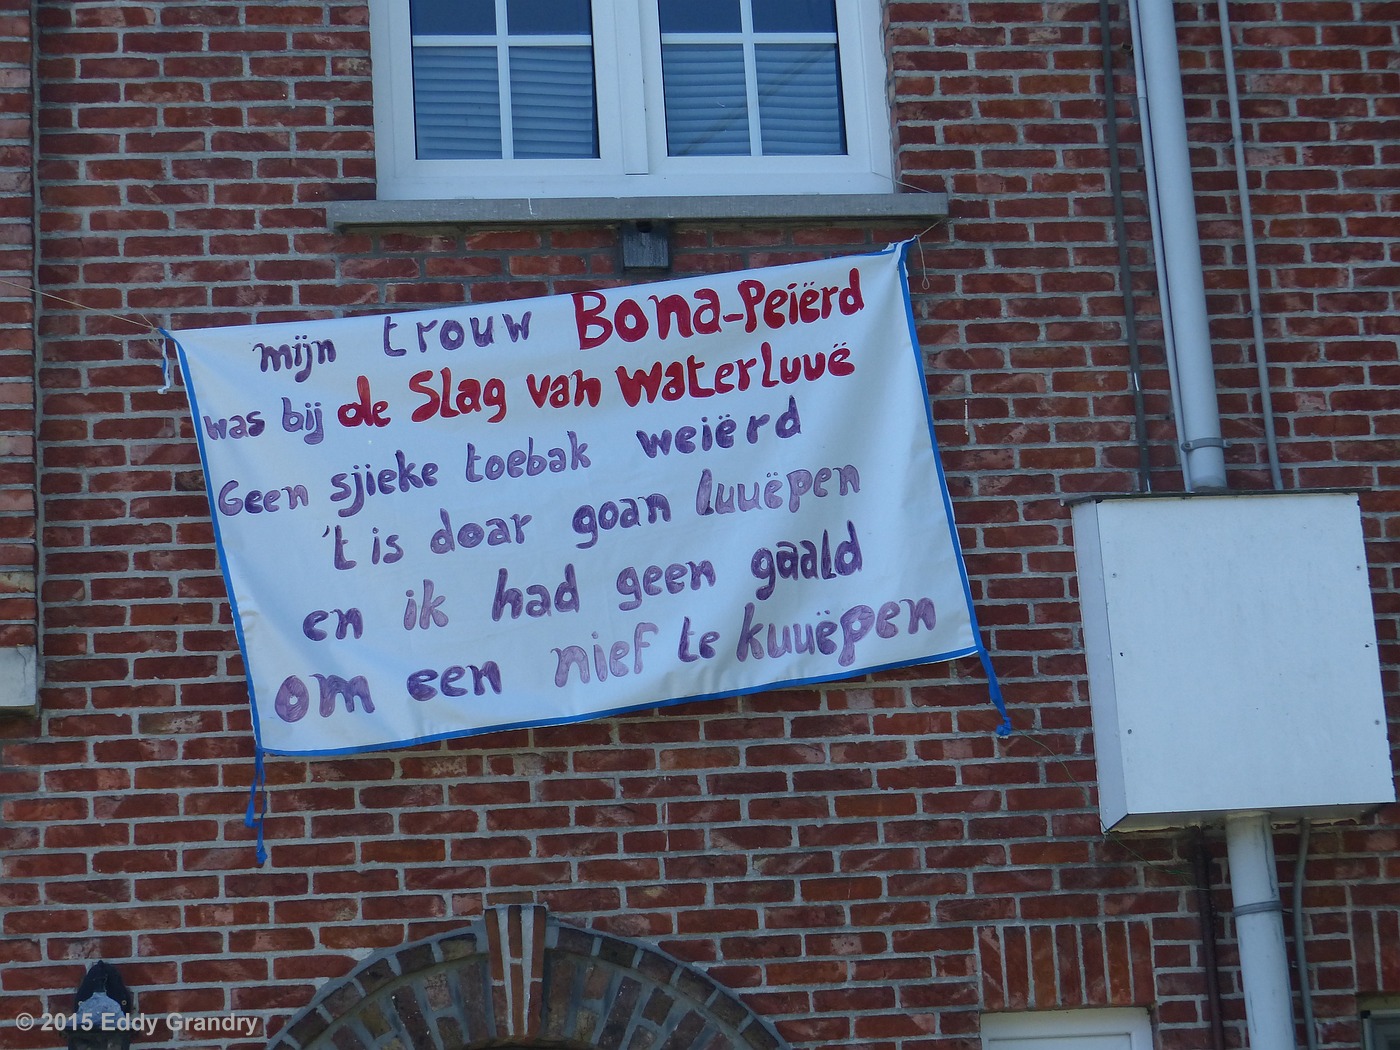 mijn trouw Bona-Peiërd
was bij de Slag van Waterluuë
Geen sjieke toebak weiërd
't is doar goan luuëpen
en ik had geen gaald
om een nief te kuuëpen
© 2015 Eddy Grandry